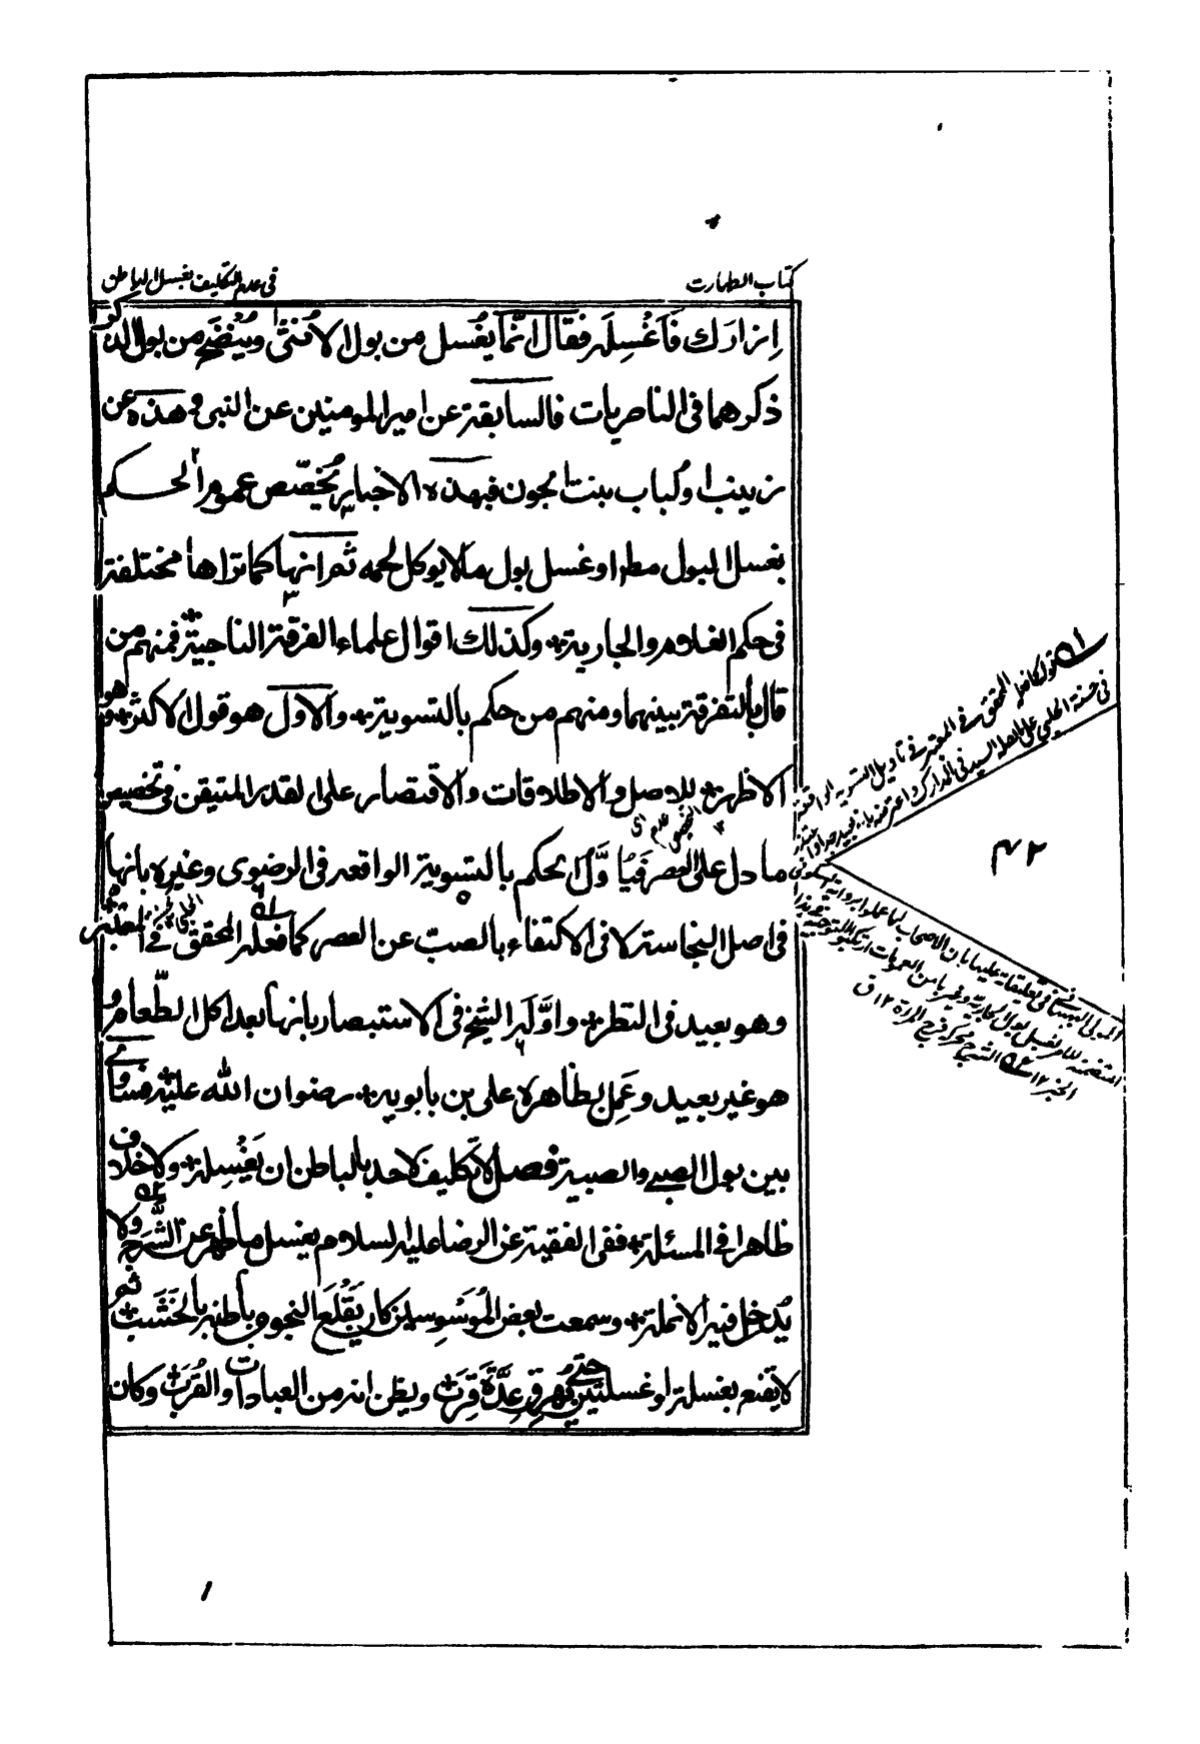 كتاب الطهارت
في عدم التكليف بغسل الباطن
اِزارَك فَاَغْسِلَه فقال انّما يُغسل من بول الاُنثىٰ ويُنضَح من بول الذكر
ذكرهما في الناصريات فالسابقة عن امير المومنين عن النبي ص وهذه عن
زينب او لُباب بنت الجون فبهذه الاخبار يُخصّص عموم الحكم
بغسل البول مطلقا او غسل بول مالا يوكل لحمه ثم انها كما تراها مختلفة
في حكم الغلام والجارية وكذلك اقوال علماء الفرقة الناجية فمنهم من
قال بالتفرقة بينهما ومنهم من حكم بالتسوية والاول هو قول الاكثر وهو
الاظهر للاصل والاطلاقات والاقتصار على القدر المتيقن في تخصيص
ما دل على العصر فيا وّل الحكم بالتسوية الواقعه في الرضوي وغيره بانها
اي عدم التخصيص
في اصل النجاسة لا في الاكتفاء بالصبّ عن العصر كما فعله المحقق الحلي في المعتبر
وهو بعيد في النظر واوّله الشيخ في الاستبصار بانها بعد اكل الطّعام و
هو غير بعيد وعَمِل بظاهره علي بن بابويه رضوان الله عليه فساوى
بين بول الصبي والصبية فصل لا تكليف لاحد بالباطن ان يَغْسِله ولا خلاف
ظاهرا في المسئلة ففي الفقيه عن الرضا عليه السلام يغسل ما ظهر عن الشَّرَج ولا
يُدخل فيه الانملة وسمعت بعض المُوَسْوِسين كان يَقْلَع النجو من باطنه بالخَشَب ثم
لا يقنع بغسلة او غسلتين حتى يُهرق عِدَّة قِرَب ويظن انه من العبادات والقُرَب وكان
قوله كما فعله المحقق في المعتبر في تاويل التسوية الواقعة
في حسنة الحلبي على اصل السيد في المدارك اعترضه بانه بعيد
٤٢